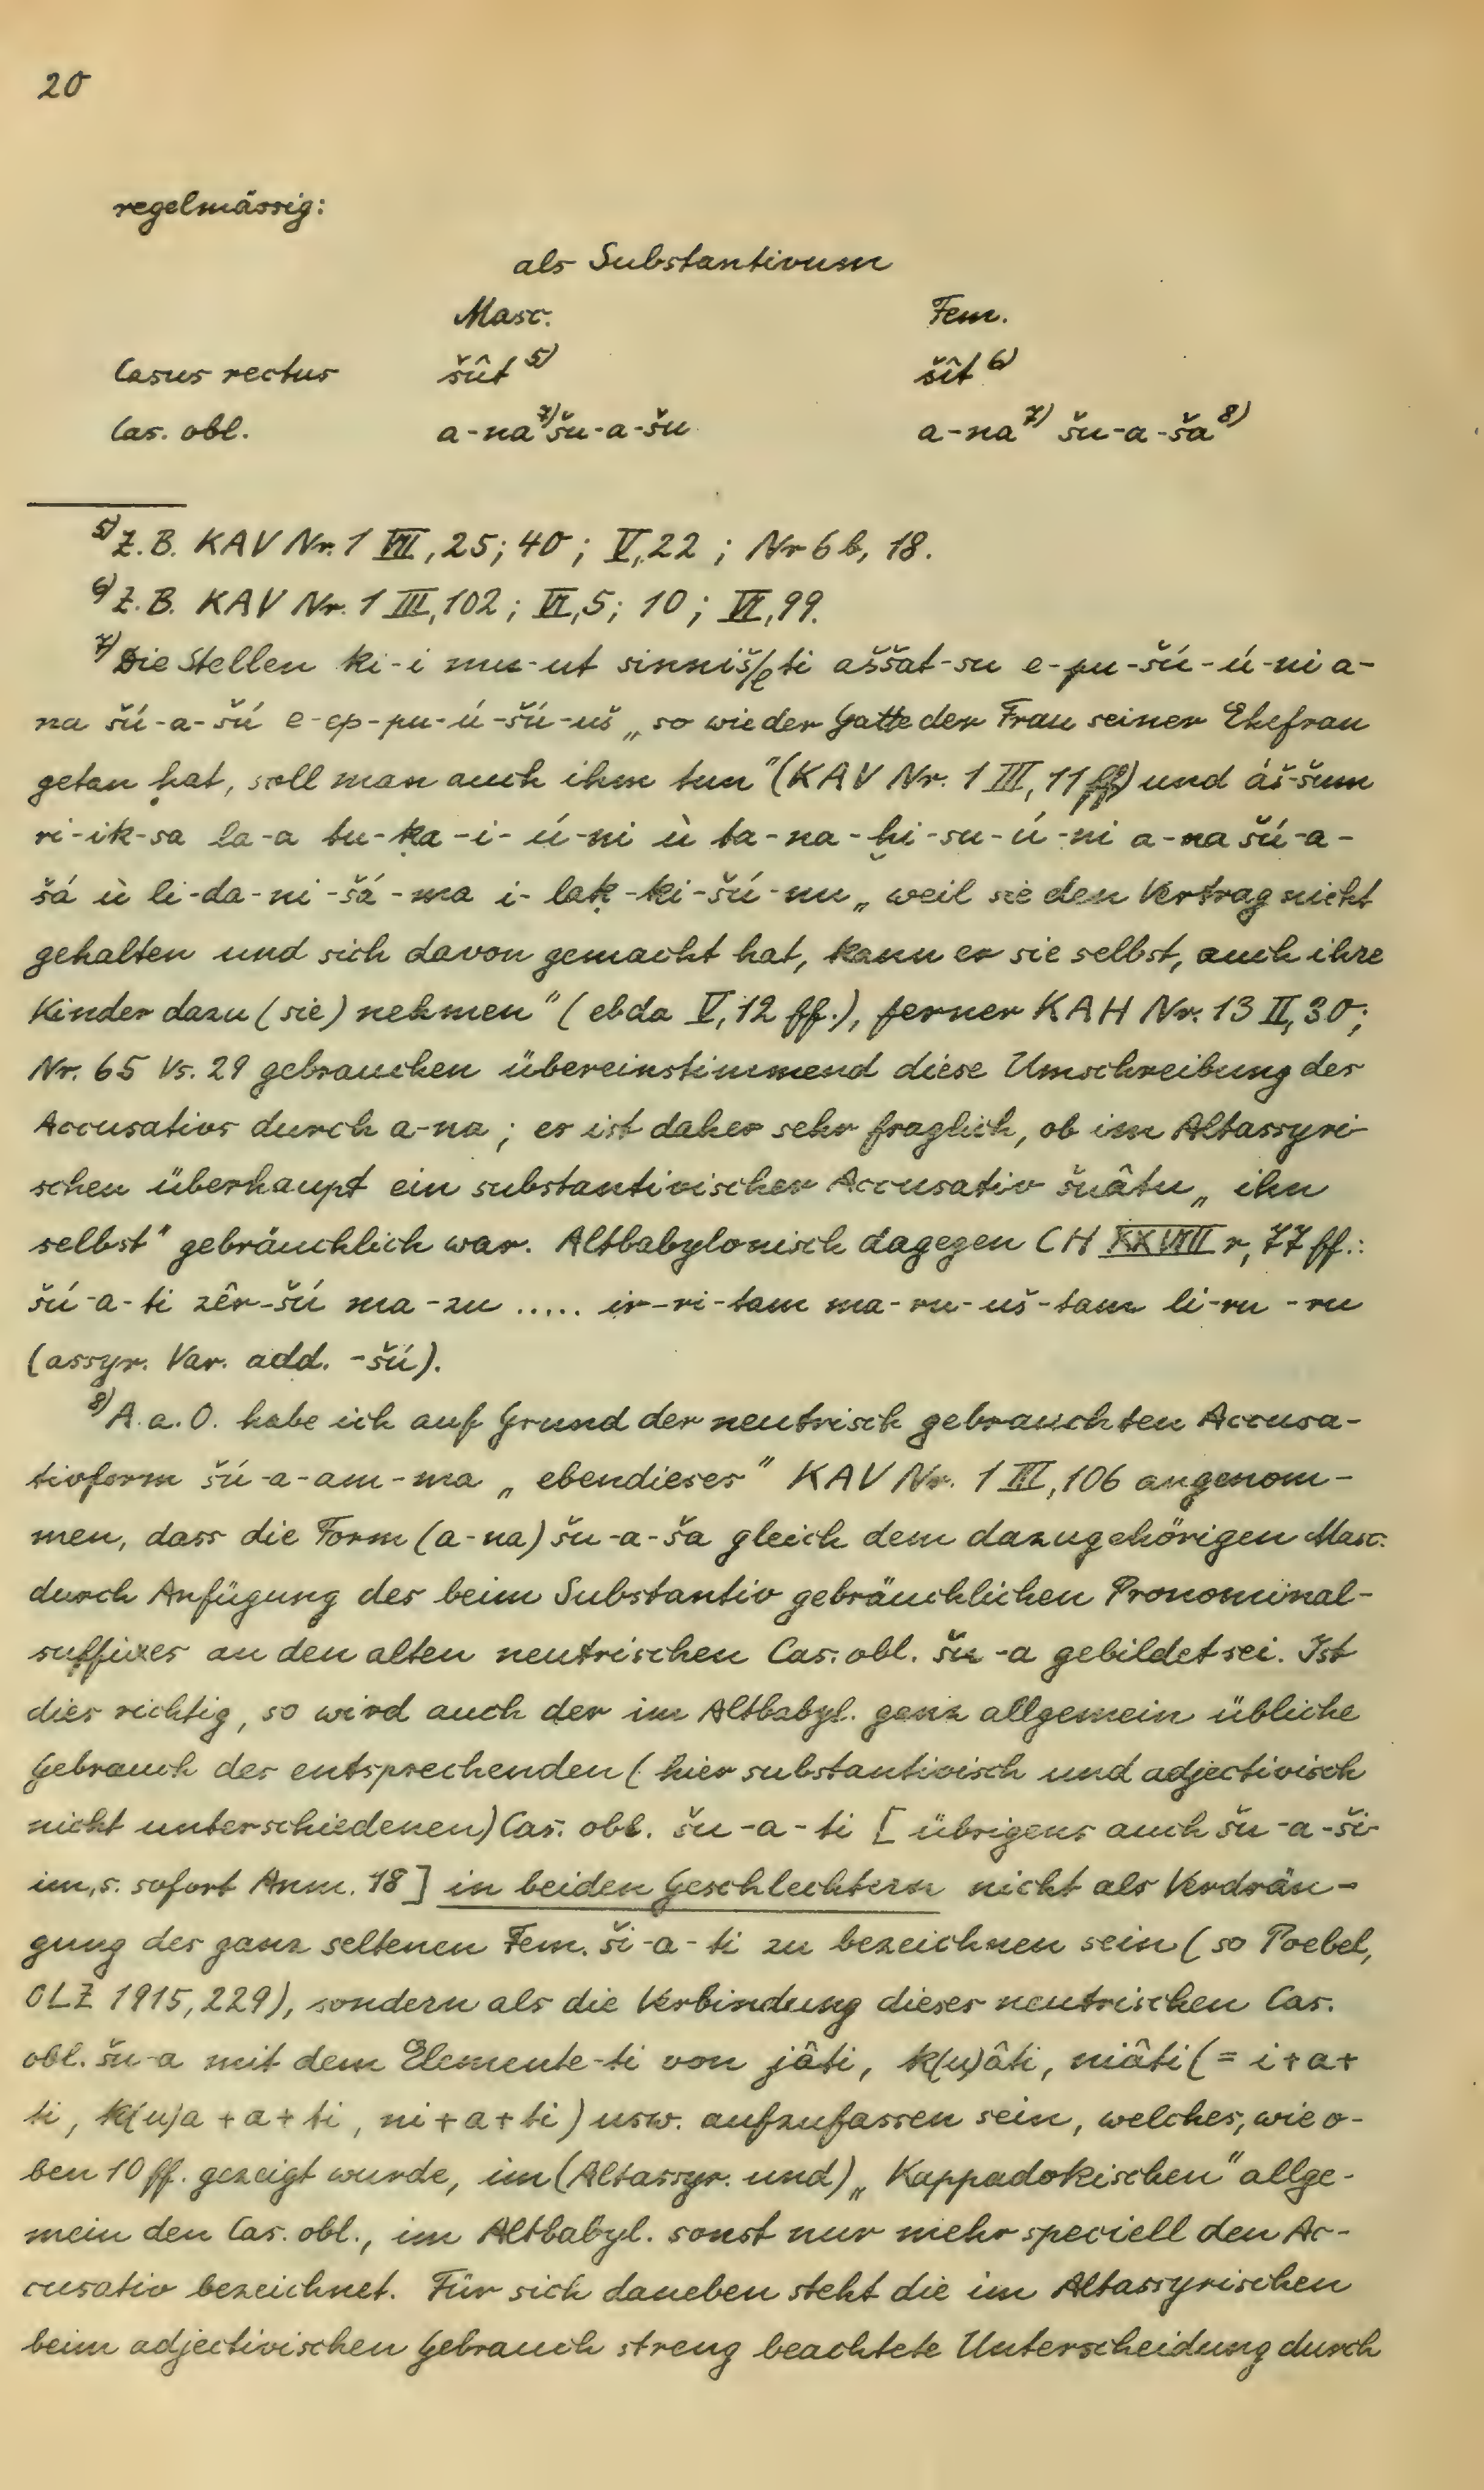 20
regelmässig:
als Substantivum
Masc. Fem.
Casus rectus šût ⁵⁾ šît ⁶⁾
Cas. obl. a-na ⁷⁾ šu-a-šu a-na ⁷⁾ šu-a-ša ⁸⁾
⁵⁾ Z.B. KAV Nr. 1 VII, 25; 40; V, 22; Nr 6 b, 18.
⁶⁾ Z.B. KAV Nr. 1 III, 102; VI, 5; 10; VI, 99.
⁷⁾ Die Stellen ki-i mu-ut sinniš/eti aššat-su e-pu-šú-ú-ni a-
na šú-a-šú e-ep-pu-ú-šú-uš „so wie der Gatte der Frau seiner Ehefrau
getan hat, soll man auch ihm tun" (KAV Nr. 1 III, 11 ff) und áš-šum
ri-ik-sa la-a tu-ḳa-i-ú-ni ù ta-na-ḫi-su-ú-ni a-na šú-a-
šá ù li-da-ni-šá-ma i-laḳ-ḳi-šú-nu „weil sie den Vertrag nicht
gehalten und sich davon gemacht hat, kann er sie selbst, auch ihre
Kinder dazu (sie) nehmen" (ebda V, 12 ff.), ferner KAH Nr. 13 II, 30;
Nr. 65 Vs. 29 gebrauchen übereinstimmend diese Umschreibung des
Accusativs durch a-na; es ist daher sehr fraglich, ob im Altassyri-
schen überhaupt ein substantivischer Accusativ šuâtu „ihn
selbst" gebräuchlich war. Altbabylonisch dagegen CH XXVIII r, 77 ff.:
šú-a-ti zêr-šú ma-zu ..... ir-ri-tam ma-ru-uš-tam li-ru-ru
(assyr. Var. add. -šú).
⁸⁾ A.a.O. habe ich auf Grund der neutrisch gebrauchten Accusa-
tivform šú-a-am-ma „ebendieses" KAV Nr. 1 III, 106 angenom-
men, dass die Form (a-na) šu-a-ša gleich dem dazugehörigen Masc.
durch Anfügung des beim Substantiv gebräuchlichen Pronominal-
suffixes an den alten neutrischen Cas. obl. šu-a gebildet sei. Ist
dies richtig, so wird auch der im Altbabyl. ganz allgemein übliche
Gebrauch des entsprechenden (hier substantivisch und adjectivisch
nicht unterschiedenen) Cas. obl. šu-a-ti [übrigens auch šu-a-ši-
im, s. sofort Anm. 18] in beiden Geschlechtern nicht als Verdrän-
gung des ganz seltenen Fem. ši-a-ti zu bezeichnen sein (so Poebel,
OLZ 1915, 229), sondern als die Verbindung dieses neutrischen Cas.
obl. šu-a mit dem Elemente -ti von jâti, k(u)âti, niâti (= i+a+
ti, k(u)a+a+ti, ni+a+ti) usw. aufzufassen sein, welches, wie o-
ben 10 ff. gezeigt wurde, im (Altassyr. und) „Kappadokischen" allge-
mein den Cas. obl., im Altbabyl. sonst nur mehr speciell den Ac-
cusativ bezeichnet. Für sich daneben steht die im Altassyrischen
beim adjectivischen Gebrauch streng beachtete Unterscheidung durch